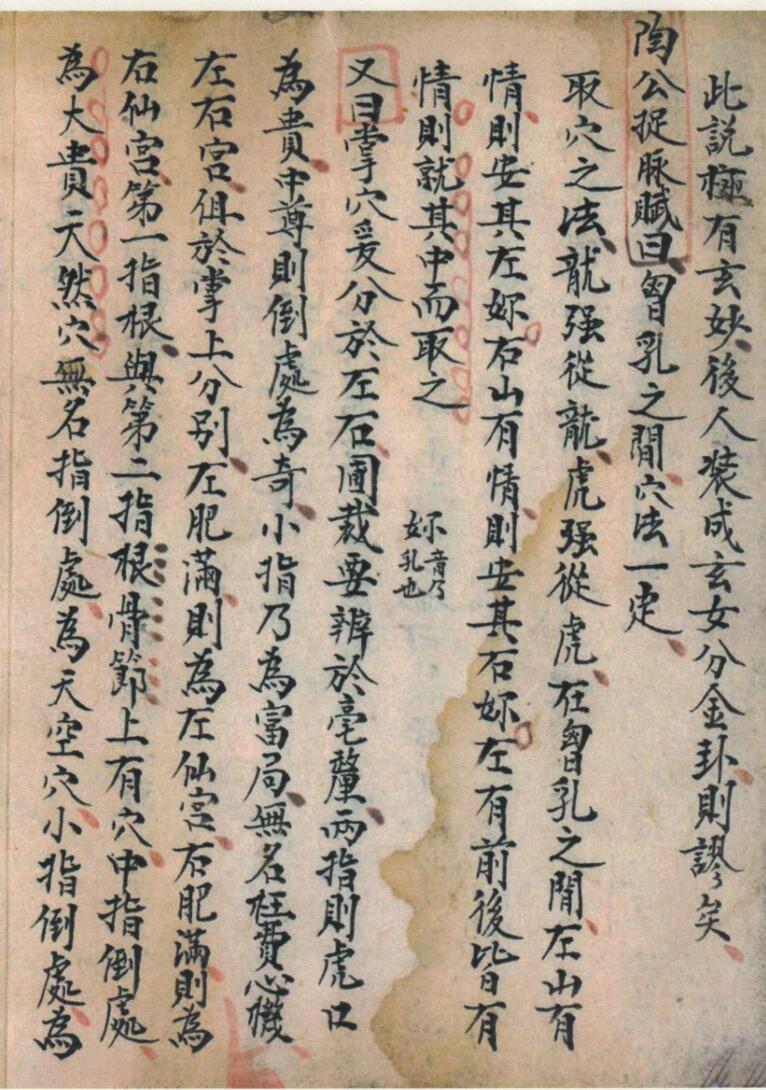 此說極有玄妙後人裝成玄女分金卦則謬矣
陶公捉脉賦曰胷乳之間穴法一定
取穴之法龍强從龍虎强從虎在胷乳之間左山有
情則安其左妳右山有情則安其右妳左有前後皆有
情則就其中而取之
妳音乃
乳也
又曰掌穴爰分於左右圃裁要辨於毫釐兩指則虎口
為貴中尊則倒處為奇小指乃為富局無名枉費心機
左右宮俱於掌上分别左肥滿則為左仙宮右肥滿則為
右仙宮第一指根與第二指根骨節上有穴中指倒處
為大貴天然穴無名指倒處為天空穴小指倒處為